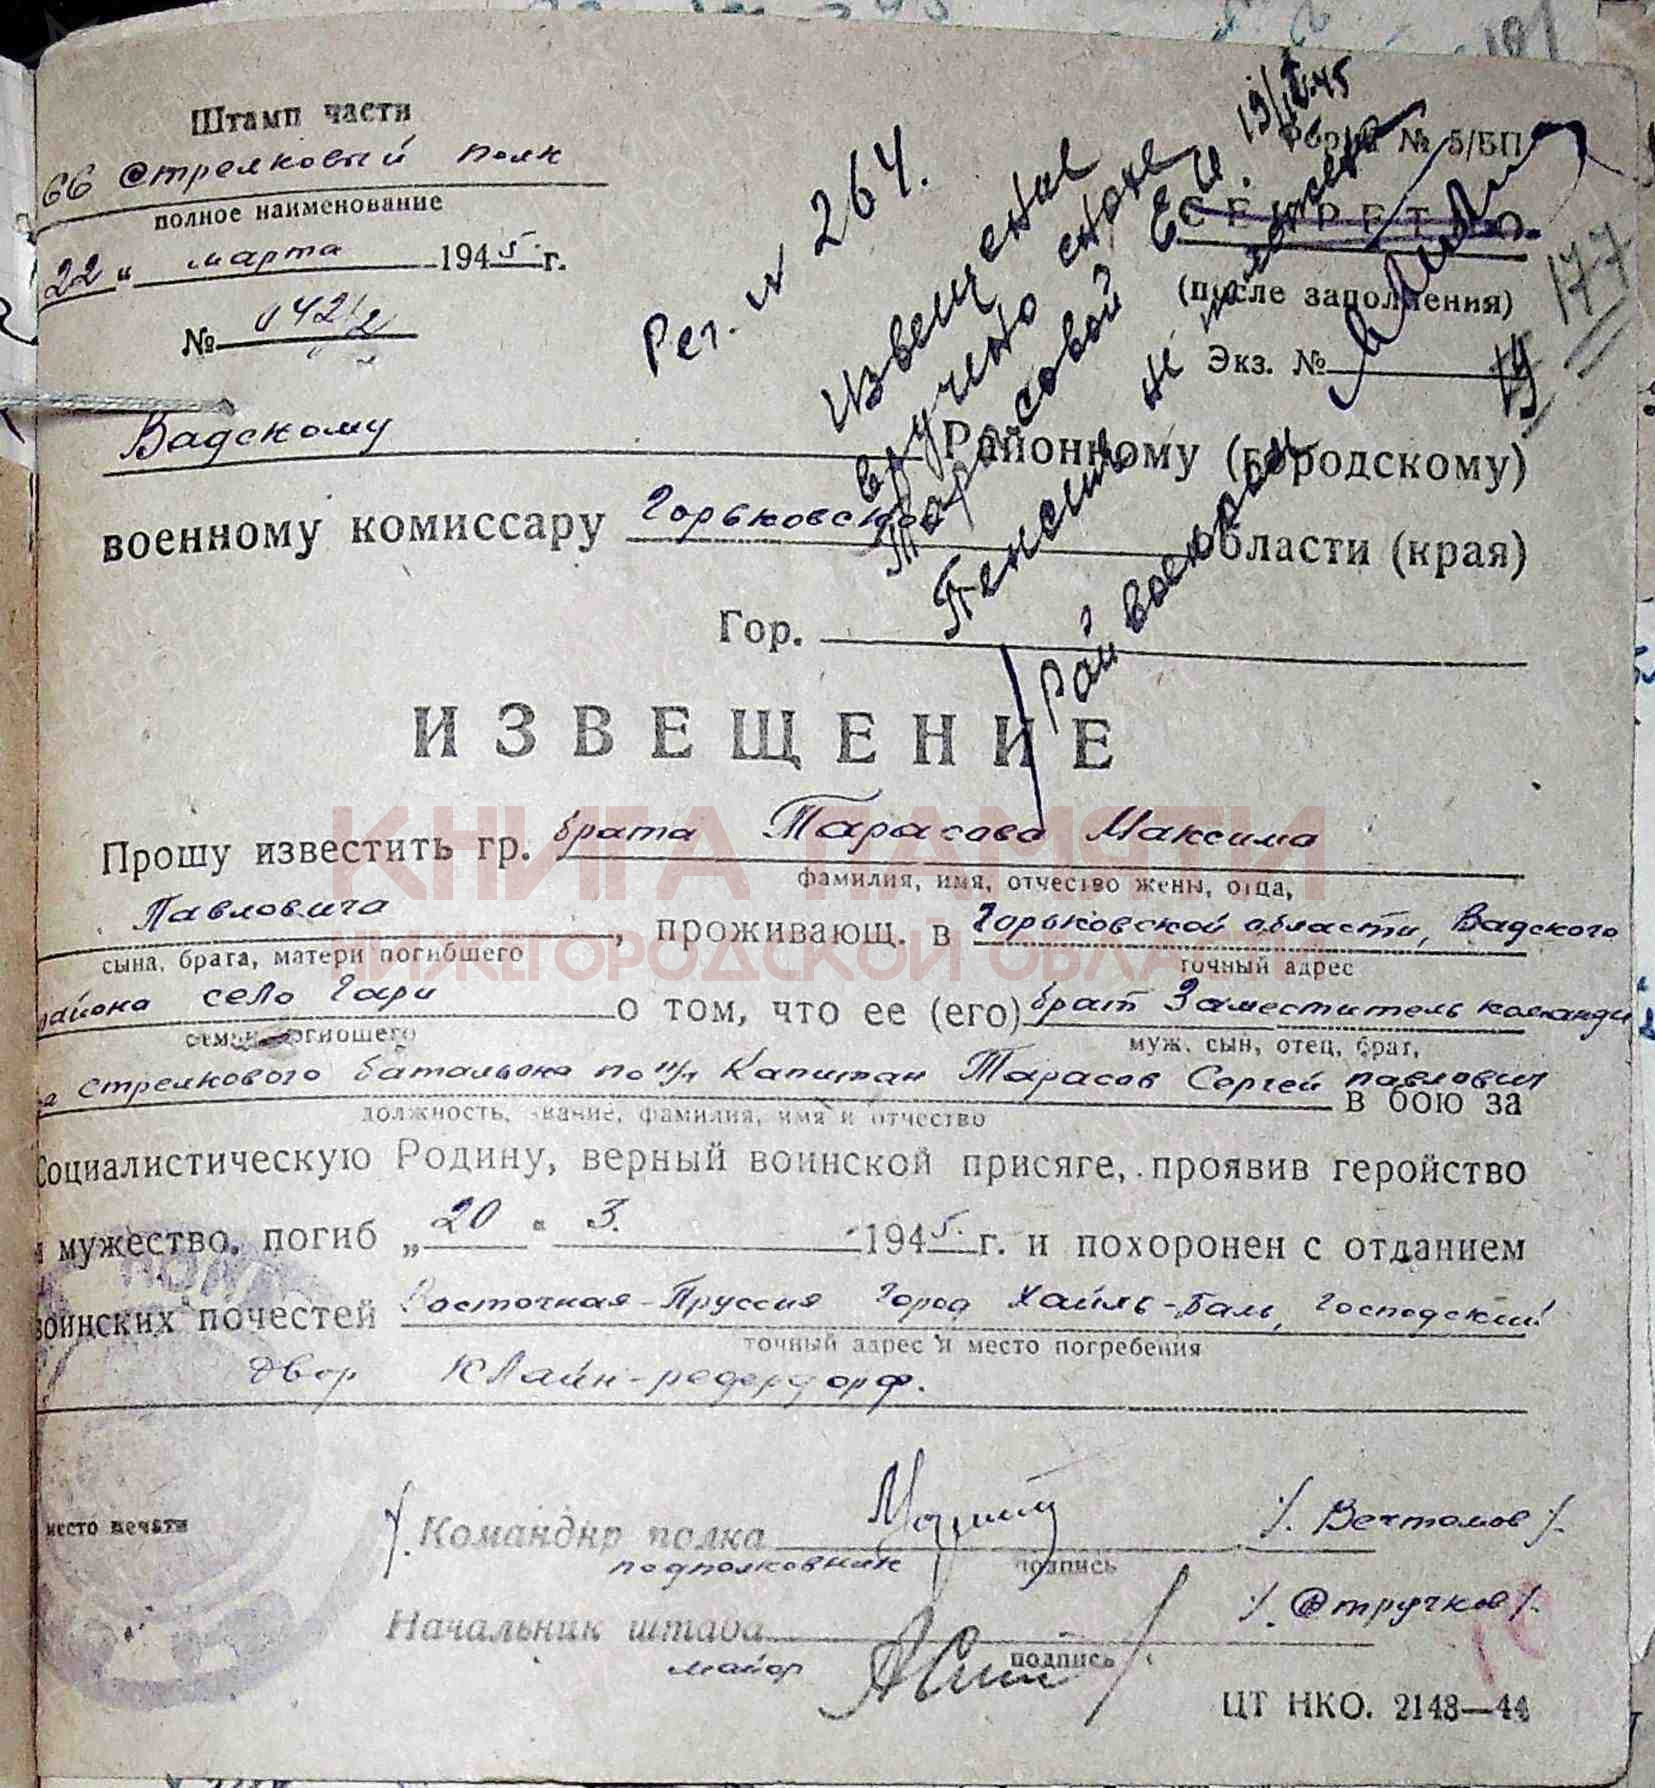 191
Штамп части
66 Стрелковый полк
полное наименование
22 " марта 1945 г.
№ 0421/2
Рег. № 264.
Извещение
вручено снохе
Тарасовой Е. И. 19/IV.45
Пенсии не
Райвоенком
Форма № 5/БП
СЕКРЕТНО.
(после заполнения)
Экз. №
177
Вадскому Районному (городскому)
военному комиссару Горьковской области (края)
Гор.
ИЗВЕЩЕНИЕ
КНИГА ПАМЯТИ
НИЖЕГОРОДСКОЙ ОБЛАСТИ
Прошу известить гр. брата Тарасова Максима
фамилия, имя, отчество жены, отца,
Павловича, проживающ. в Горьковской области, Вадского
сына, брата, матери погибшего точный адрес
района село Гари о том, что ее (его) брат Заместитель команди
семьи погибшего муж, сын, отец, брат,
ра стрелкового батальона по п/ч Капитан Тарасов Сергей павлович
должность, звание, фамилия, имя и отчество в бою за
Социалистическую Родину, верный воинской присяге, проявив геройство
и мужество, погиб „20" 3. 1945. г. и похоронен с отданием
воинских почестей Восточная-Пруссия город Хайль-Баль, Господский
точный адрес и место погребения
двор Клайн-редердорф.
место печати
Командир полка /. Вечтомов /.
подполковник подпись
Начальник штаба /. Стручков /.
майор подпись
ЦТ НКО. 2148—44